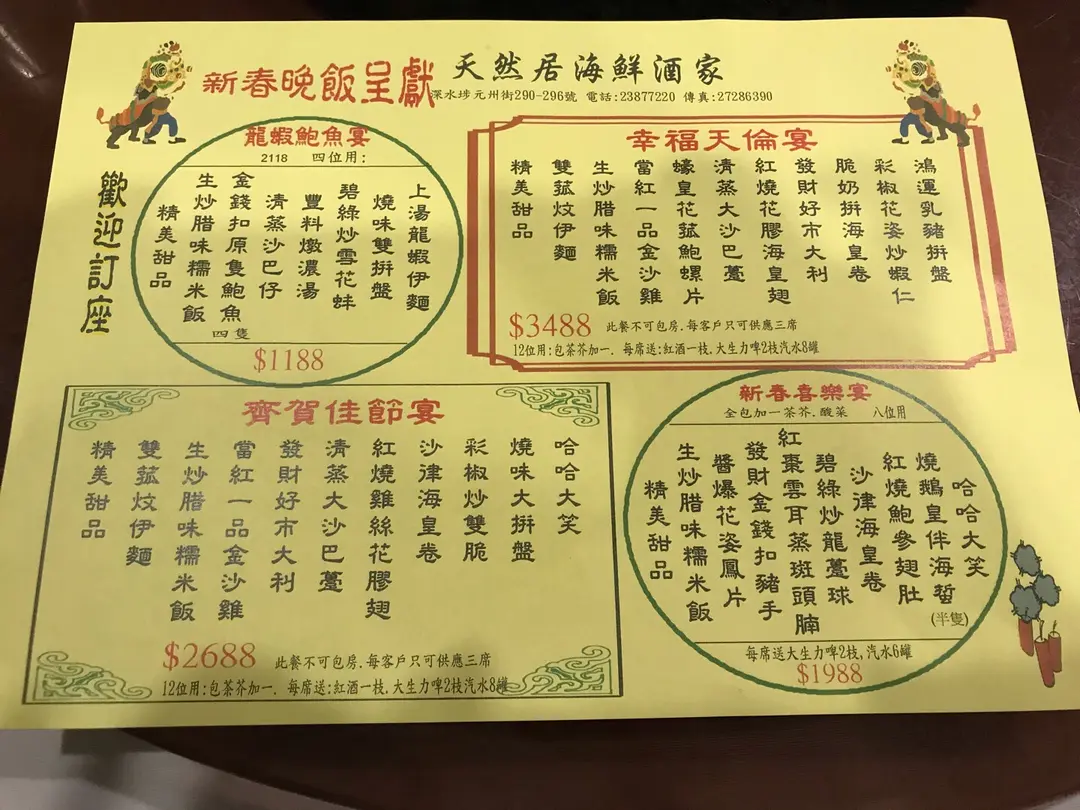 新春晚飯呈獻
天然居海鮮酒家
深水埗元州街290-296號 電話:23877220 傳真:27286390
歡迎訂座
龍蝦鮑魚宴
2118 四位用:
上湯龍蝦伊麵
燒味雙拼盤
碧綠炒雪花蚌
豐料燉濃湯
清蒸沙巴仔
金錢扣原隻鮑魚
四隻
生炒腊味糯米飯
精美甜品
$1188
幸福天倫宴
鴻運乳豬拼盤
彩椒花姿炒蝦仁
脆奶拼海皇卷
發財好市大利
紅燒花膠海皇翅
清蒸大沙巴躉
蠔皇花菰鮑螺片
當紅一品金沙雞
生炒腊味糯米飯
雙菰炆伊麵
精美甜品
$3488 此餐不可包房.每客戶只可供應三席
12位用:包茶芥加一. 每席送:紅酒一枝.大生力啤2枝汽水8罐
齊賀佳節宴
哈哈大笑
燒味大拼盤
彩椒炒雙脆
沙律海皇卷
紅燒雞絲花膠翅
清蒸大沙巴躉
發財好市大利
當紅一品金沙雞
生炒腊味糯米飯
雙菰炆伊麵
精美甜品
$2688 此餐不可包房.每客戶只可供應三席
12位用:包茶芥加一. 每席送:紅酒一枝.大生力啤2枝汽水8罐
新春喜樂宴
全包加一茶芥.酸菜 八位用
哈哈大笑
燒鵝皇伴海蜇
(半隻)
紅燒鮑參翅肚
沙律海皇卷
碧綠炒龍躉球
紅棗雲耳蒸斑頭腩
發財金錢扣豬手
醬爆花姿鳳片
生炒腊味糯米飯
精美甜品
每席送大生力啤2枝,汽水6罐
$1988